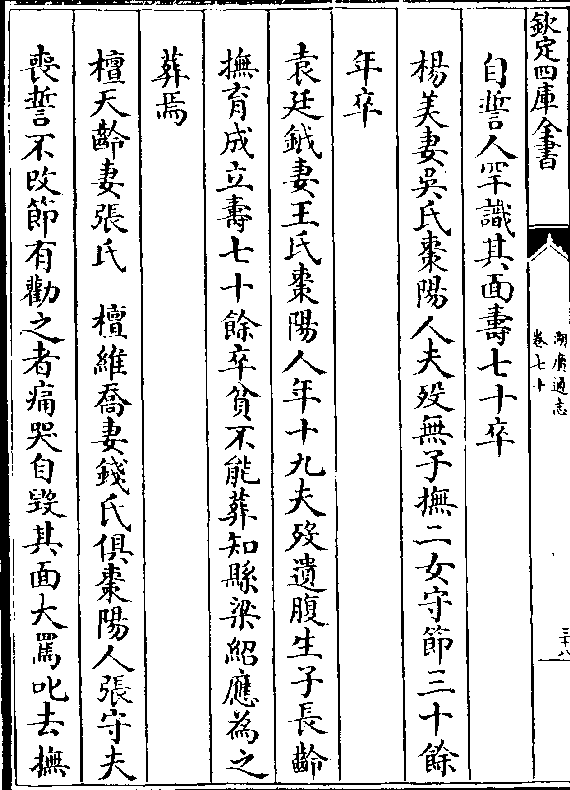 欽定四庫全書
湖廣通志
卷七十
三十八
自誓人罕識其面壽七十卒
楊美妻吳氏棗陽人夫歿無子撫二女守節三十餘
年卒
袁廷鉞妻王氏棗陽人年十九夫歿遺腹生子長齡
撫育成立壽七十餘卒貧不能葬知縣梁紹應為之
葬焉
檀天齡妻張氏　檀維喬妻錢氏俱棗陽人張守夫
喪誓不改節有勸之者痛哭自毀其面大罵叱去撫